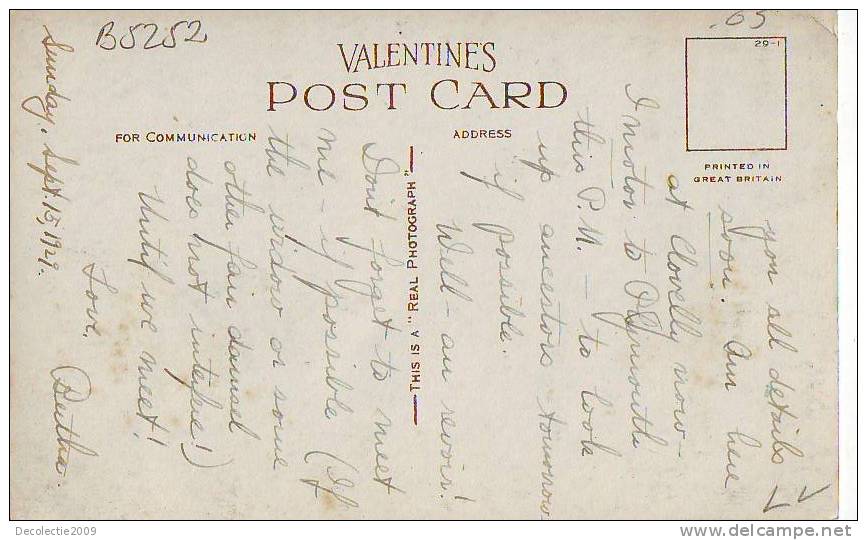 B5252
.65
VALENTINE'S
POST CARD
FOR COMMUNICATION
ADDRESS
29-1
PRINTED IN
GREAT BRITAIN
THIS IS A "REAL PHOTOGRAPH"
you all details
soon. Am here
at Clovelly now -
I motor to Plymouth
this P.M. - to look
up ancestors tomorrow
if possible.
Well - au revoir!
Don't forget to meet
me - if possible (If
the widow or some
other fair damsel
does not interfere!)
Until we meet!
Love, Bertha.
Sunday, Sept. 15, 1929.
Decolectie2009
www.delcampe.net